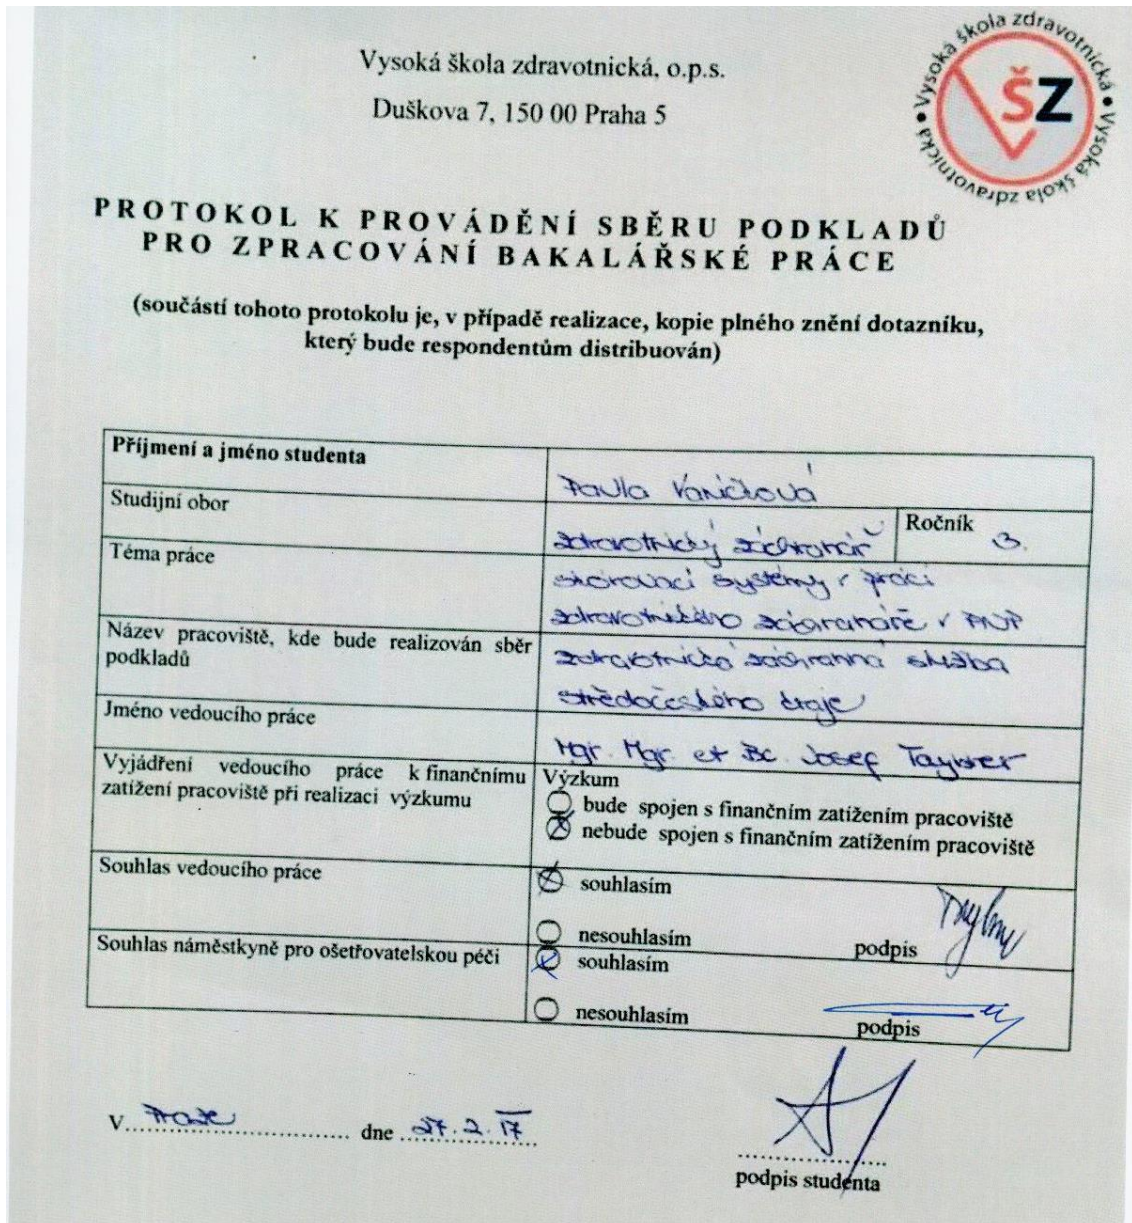 Vysoká škola zdravotnická, o.p.s.
Duškova 7, 150 00 Praha 5
Vysoká škola zdravotnická • Vysoká škola zdravotnická •
VŠZ
PROTOKOL K PROVÁDĚNÍ SBĚRU PODKLADŮ
PRO ZPRACOVÁNÍ BAKALÁŘSKÉ PRÁCE
(součástí tohoto protokolu je, v případě realizace, kopie plného znění dotazníku,
který bude respondentům distribuován)
Příjmení a jméno studenta
Pavla Vaníčková
Studijní obor
zdravotnický záchranář
Ročník 3.
Téma práce
skórovací systémy v práci
zdravotnického záchranáře v PNP
Název pracoviště, kde bude realizován sběr
podkladů
zdravotnická záchranná služba
středočeského kraje
Jméno vedoucího práce
Mgr. Mgr. et Bc. Josef
Vyjádření vedoucího práce k finančnímu
zatížení pracoviště při realizaci výzkumu
Výzkum
bude spojen s finančním zatížením pracoviště
nebude spojen s finančním zatížením pracoviště
Souhlas vedoucího práce
souhlasím
nesouhlasím podpis
Souhlas náměstkyně pro ošetřovatelskou péči
souhlasím
nesouhlasím podpis
V Praze dne 27.2.17
podpis studenta